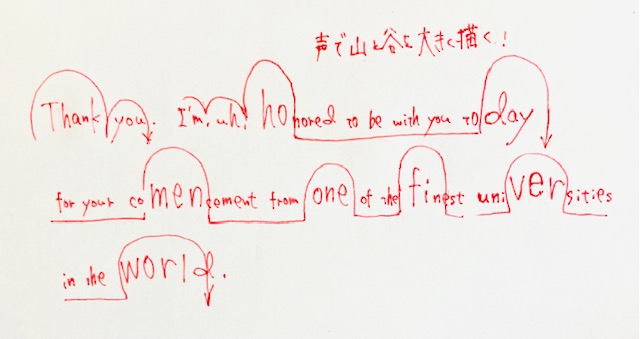 声で山と谷を大きく描く!
Thank you. I'm, uh, honored to be with you today
for your comencement from one of the finest universities
in the world.